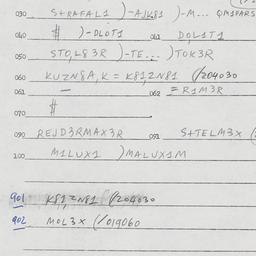 030 S+RAFAL1 )-AJK81 )-M... QM1PARS
040 # )-DLOT1 041 DOL1T1
050 STO,L83R )-TE... )TOK3R
060 KUZN8A,K = K812N81 (/204030
061 — 062 = R1M3R
070 #
090 REUD3RMAX3R 091 S+TELM3X (
100 M1LUX1 )MALUX1M
901 K812N81 (/204030
902 MOL3X (/019060